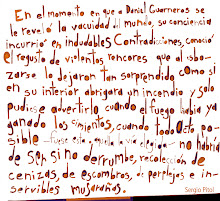 En el momento en que a Daniel Guarneros se
le reveló la vacuidad del mundo, su conciencia
incurrió en indudables Contradicciones, conoció
el regusto de violentos rencores que al esbo-
zarse lo dejaron tan sorprendido como si
en su interior abrigara un incendio y solo
pudiese advertirlo cuando el fuego había ya
ganado los cimientos, cuando todo acto po-
sible —fuese esta, muela, vía elegida— no habría
de ser sino derrumbe, recolección de
cenizas, de escombros, de perplejas e in-
servibles musarañas.
Sergio Pitol